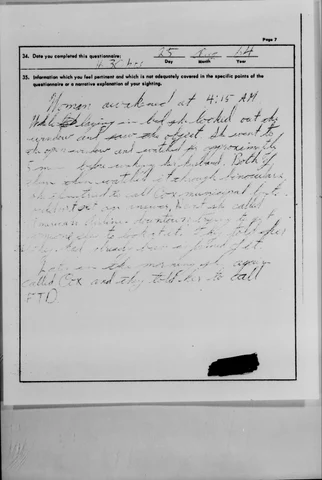 Page 7
34. Date you completed this questionnaire:
25 Aug 64
Day Month Year
35. Information which you feel pertinent and which is not adequately covered in the specific points of the
questionnaire or a narrative explanation of your sighting.
Woman awakened at 4:15 AM
While laying in bed she looked out of
window and saw the object. She went to
the open window and watched for approximately
before waking her husband. Both of
them then watched it through binoculars
to call Cox municipal
but got no answer. Next she called
American Airlines downtown trying to get
to look at it. They told her
they had already been informed of it.
Later in the morning she again
called Cox and they told her to call
FTD.